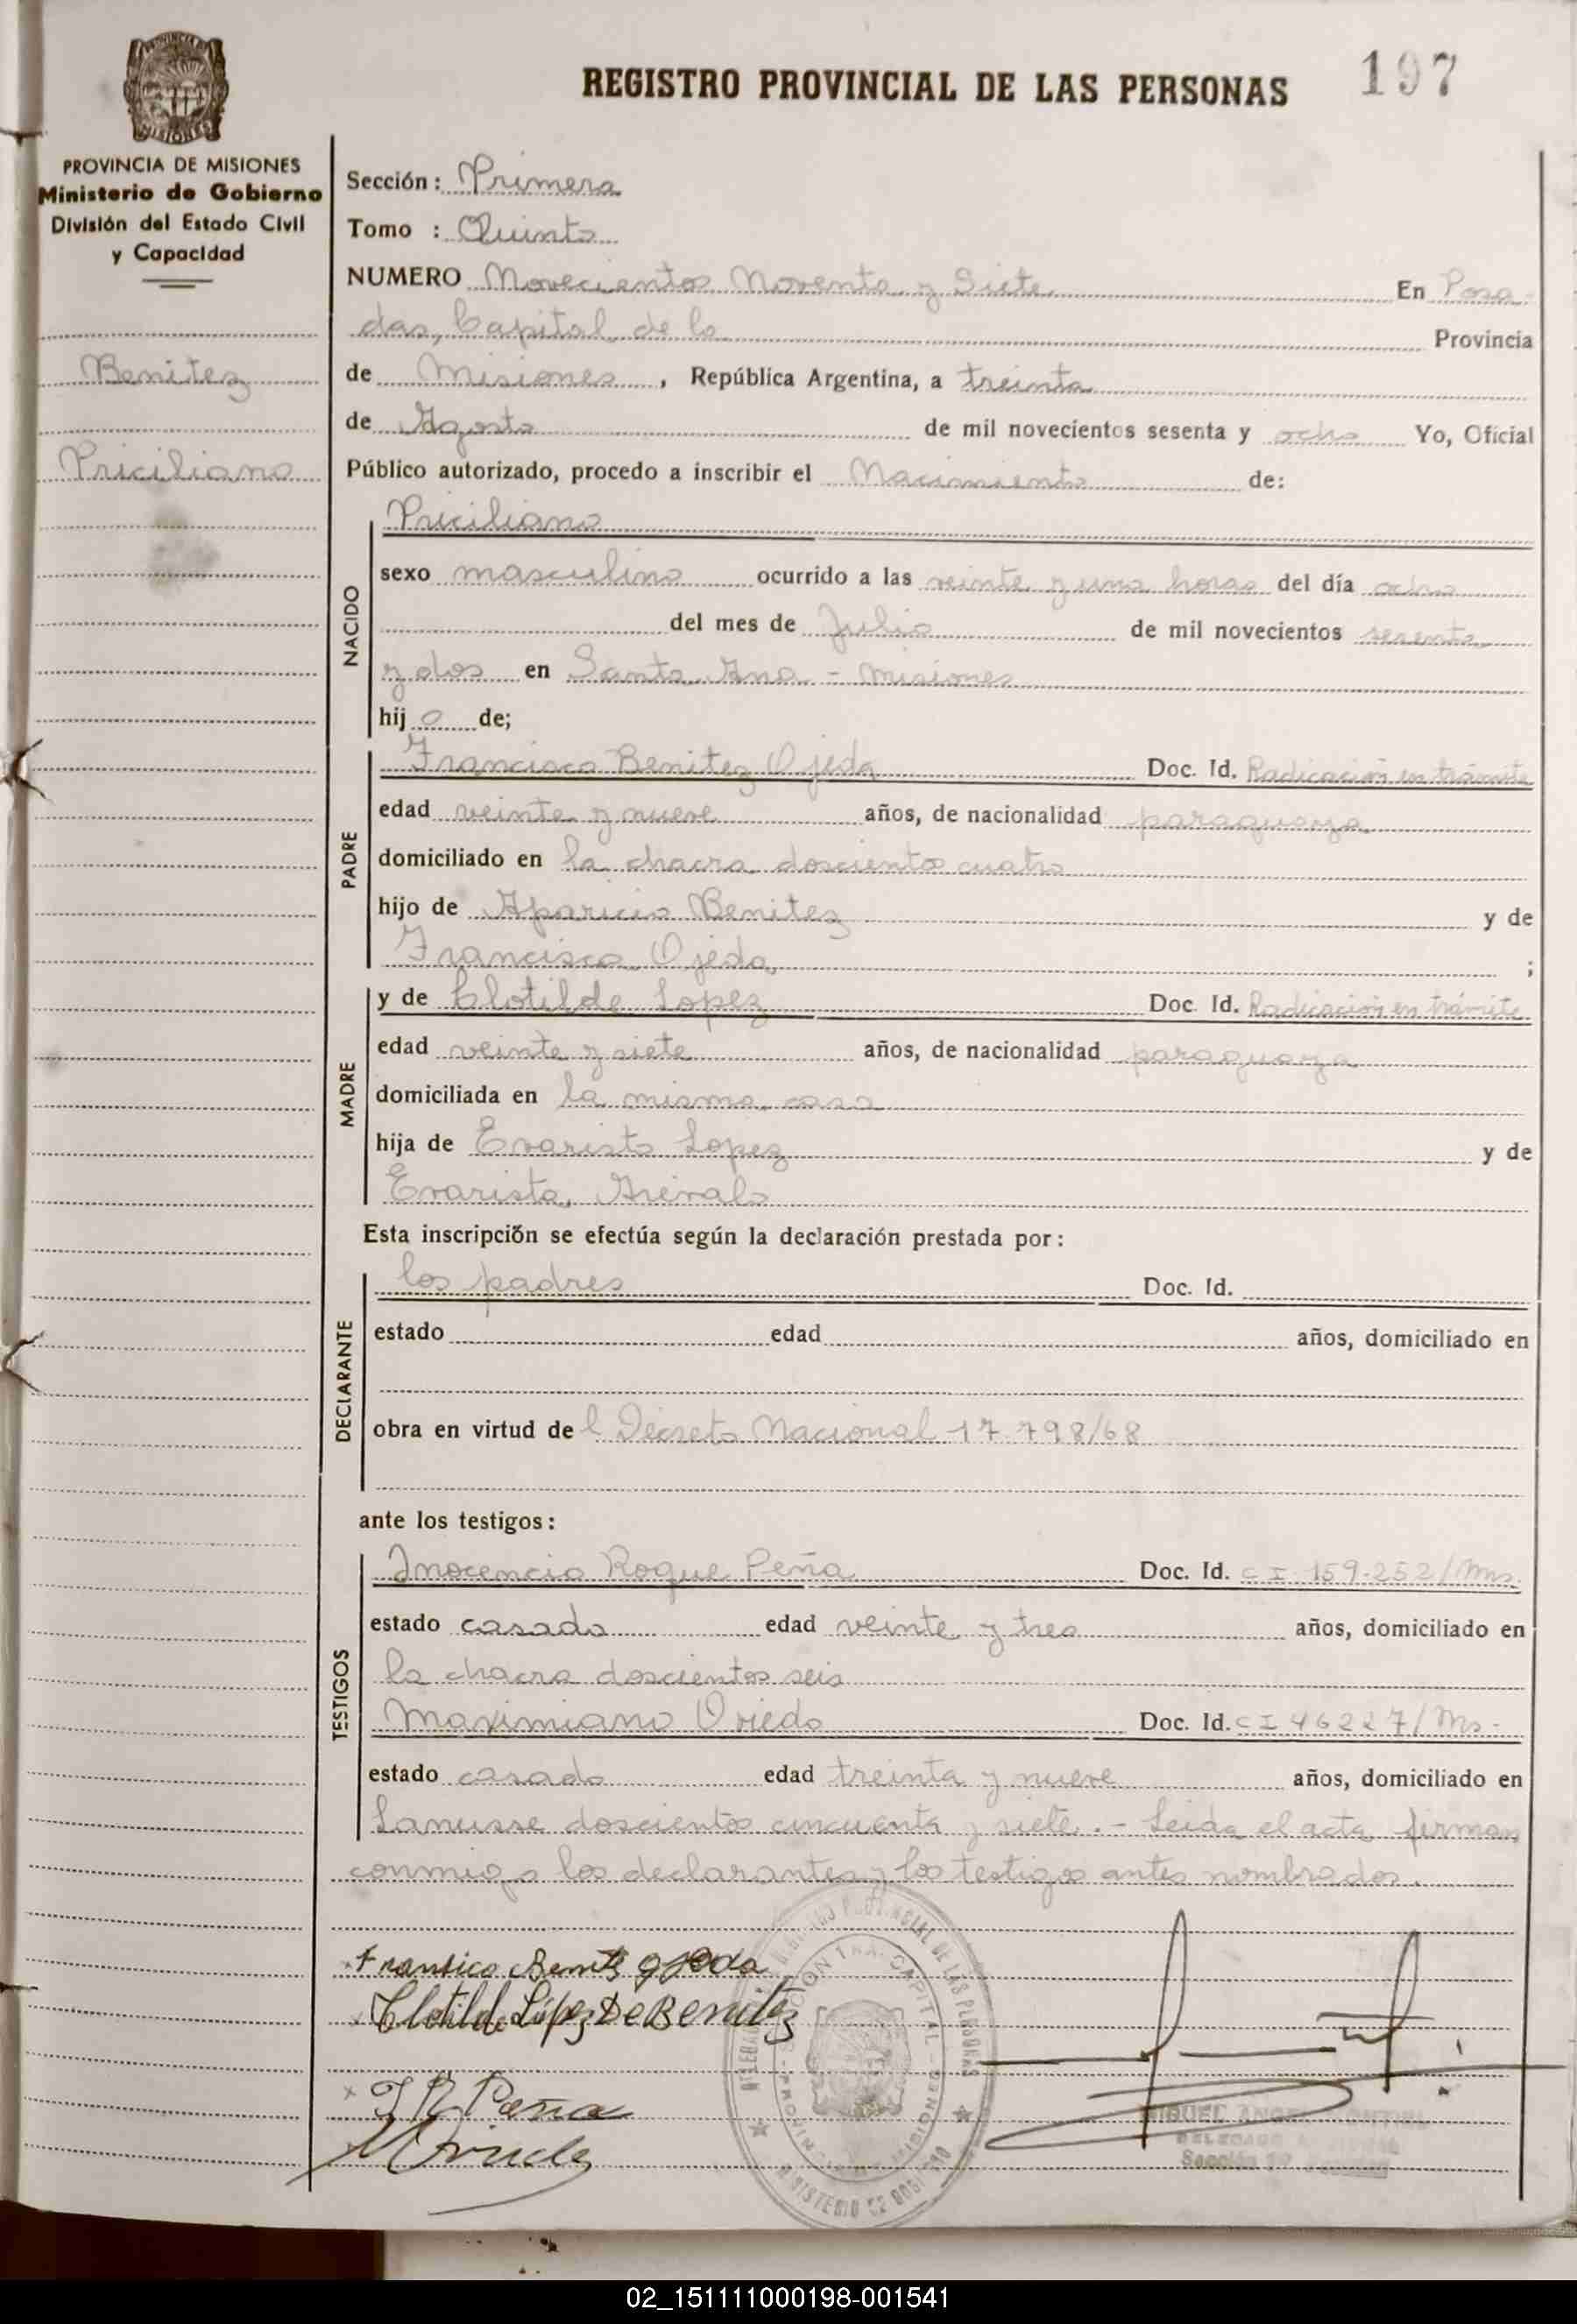 REGISTRO PROVINCIAL DE LAS PERSONAS
197
PROVINCIA DE MISIONES
PROVINCIA DE MISIONES
Ministerio de Gobierno
División del Estado Civil
y Capacidad
Benitez
Priciliano
Sección: Primera
Tomo : Quinto
NUMERO Novecientos Noventa y Siete En Posa-
das, Capital de la Provincia
de Misiones, República Argentina, a treinta
de Agosto de mil novecientos sesenta y ocho Yo, Oficial
Público autorizado, procedo a inscribir el Nacimiento de:
NACIDO
Priciliano
sexo masculino ocurrido a las veinte y una horas del día ocho
del mes de Julio de mil novecientos sesenta
y dos en Santa Ana - Misiones
hij o de;
PADRE
Francisco Benitez Ojeda Doc. Id. Radicación en trámite
edad veinte y nueve años, de nacionalidad paraguaya
domiciliado en la chacra doscientos cuatro
hijo de Aparicio Benitez y de
Francisca Ojeda ;
MADRE
y de Clotilde Lopez Doc. Id. Radicación en trámite
edad veinte y siete años, de nacionalidad paraguaya
domiciliada en la misma casa
hija de Evaristo Lopez y de
Evarista Arévalo
Esta inscripción se efectúa según la declaración prestada por:
DECLARANTE
los padres Doc. Id.
estado edad años, domiciliado en
obra en virtud de l Decreto Nacional 17.798/68
ante los testigos:
TESTIGOS
Inocencio Roque Peña Doc. Id. C I 159.252/Mns.
estado casado edad veinte y tres años, domiciliado en
la chacra doscientos seis
Maximiano Oviedo Doc. Id. C I 46227/Ms-
estado casado edad treinta y nueve años, domiciliado en
Lanusse doscientos cincuenta y siete.- Leida el acta firman
conmigo los declarantes y los testigos antes nombrados.
Fransico Benits ojeda
Clotilde López De Benitez
J R Peña
MOviedo
REGISTRO PROVINCIAL DE LAS PERSONAS
CAPITAL
MINISTERIO DE GOBIERNO
MIGUEL ANGEL
Sección 1ª
02_151111000198-001541